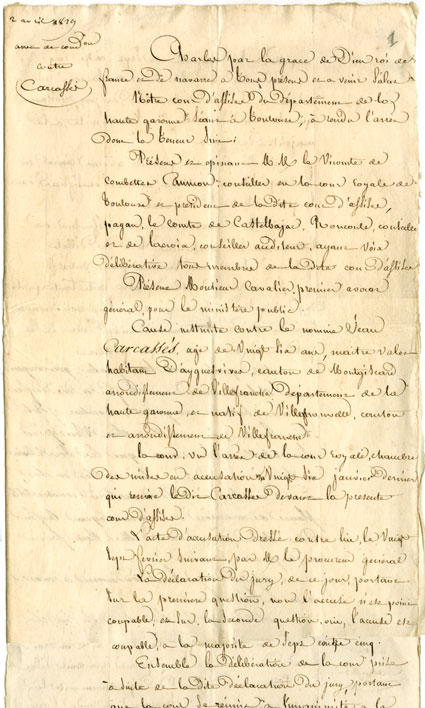 2 avril 1829
arret de cond.on
contre
Carcassés
1
Charles par la grace de Dieu roi de
france et de navarre a tous présent et a venir Salut
Notre cour d'assises du département de la
haute garonne Séant à Toulouse, à rendu l'arret
dont la teneur Suit:
Présent et opinant M M le Vicomte de
combettes Caumon, conseiller en la cour royale de
Toulouse et président de la dite cour d'assises,
pagan, le comte de Castelbajac, conseiller
et de lacroix, conseiller auditeur, ayant voix
délibérative tous membres de la dite cour d'assises
Présent Monsieur Cavalier, premier avocat
général, pour le ministère public
Cause instruite contre le nommé Jean
Carcassés, agé de Vingt six ans, maitre valet
habitant Dayguesvives, canton de Montgiscard
arrondissement de Villefranche Département de la
haute garonne, et natif de Villefranche, canton
et arrondissement de Villefranche
la cour, vu l'arret de la cour royale, chambre
des mises en accusation du Vingt six janvier dernier
qui renvoie le dit Carcasses devant la présente
cour d'assises
L'acte d'accusation dressé contre lui, le Vingt
Sept fevrier Suivant, par M le procureur general
La déclaration du jury, de ce jour, portant
Sur la premiere question, non l'accusé n'est point
coupable, et Sur la seconde question, oui, l'accusé est
coupable, a la majorité de Sept contre cinq.
Ensemble la délibération de la cour prise
à Suite de la dite déclaration du jury, portant
que la cour se reunie à l'unanimité a la